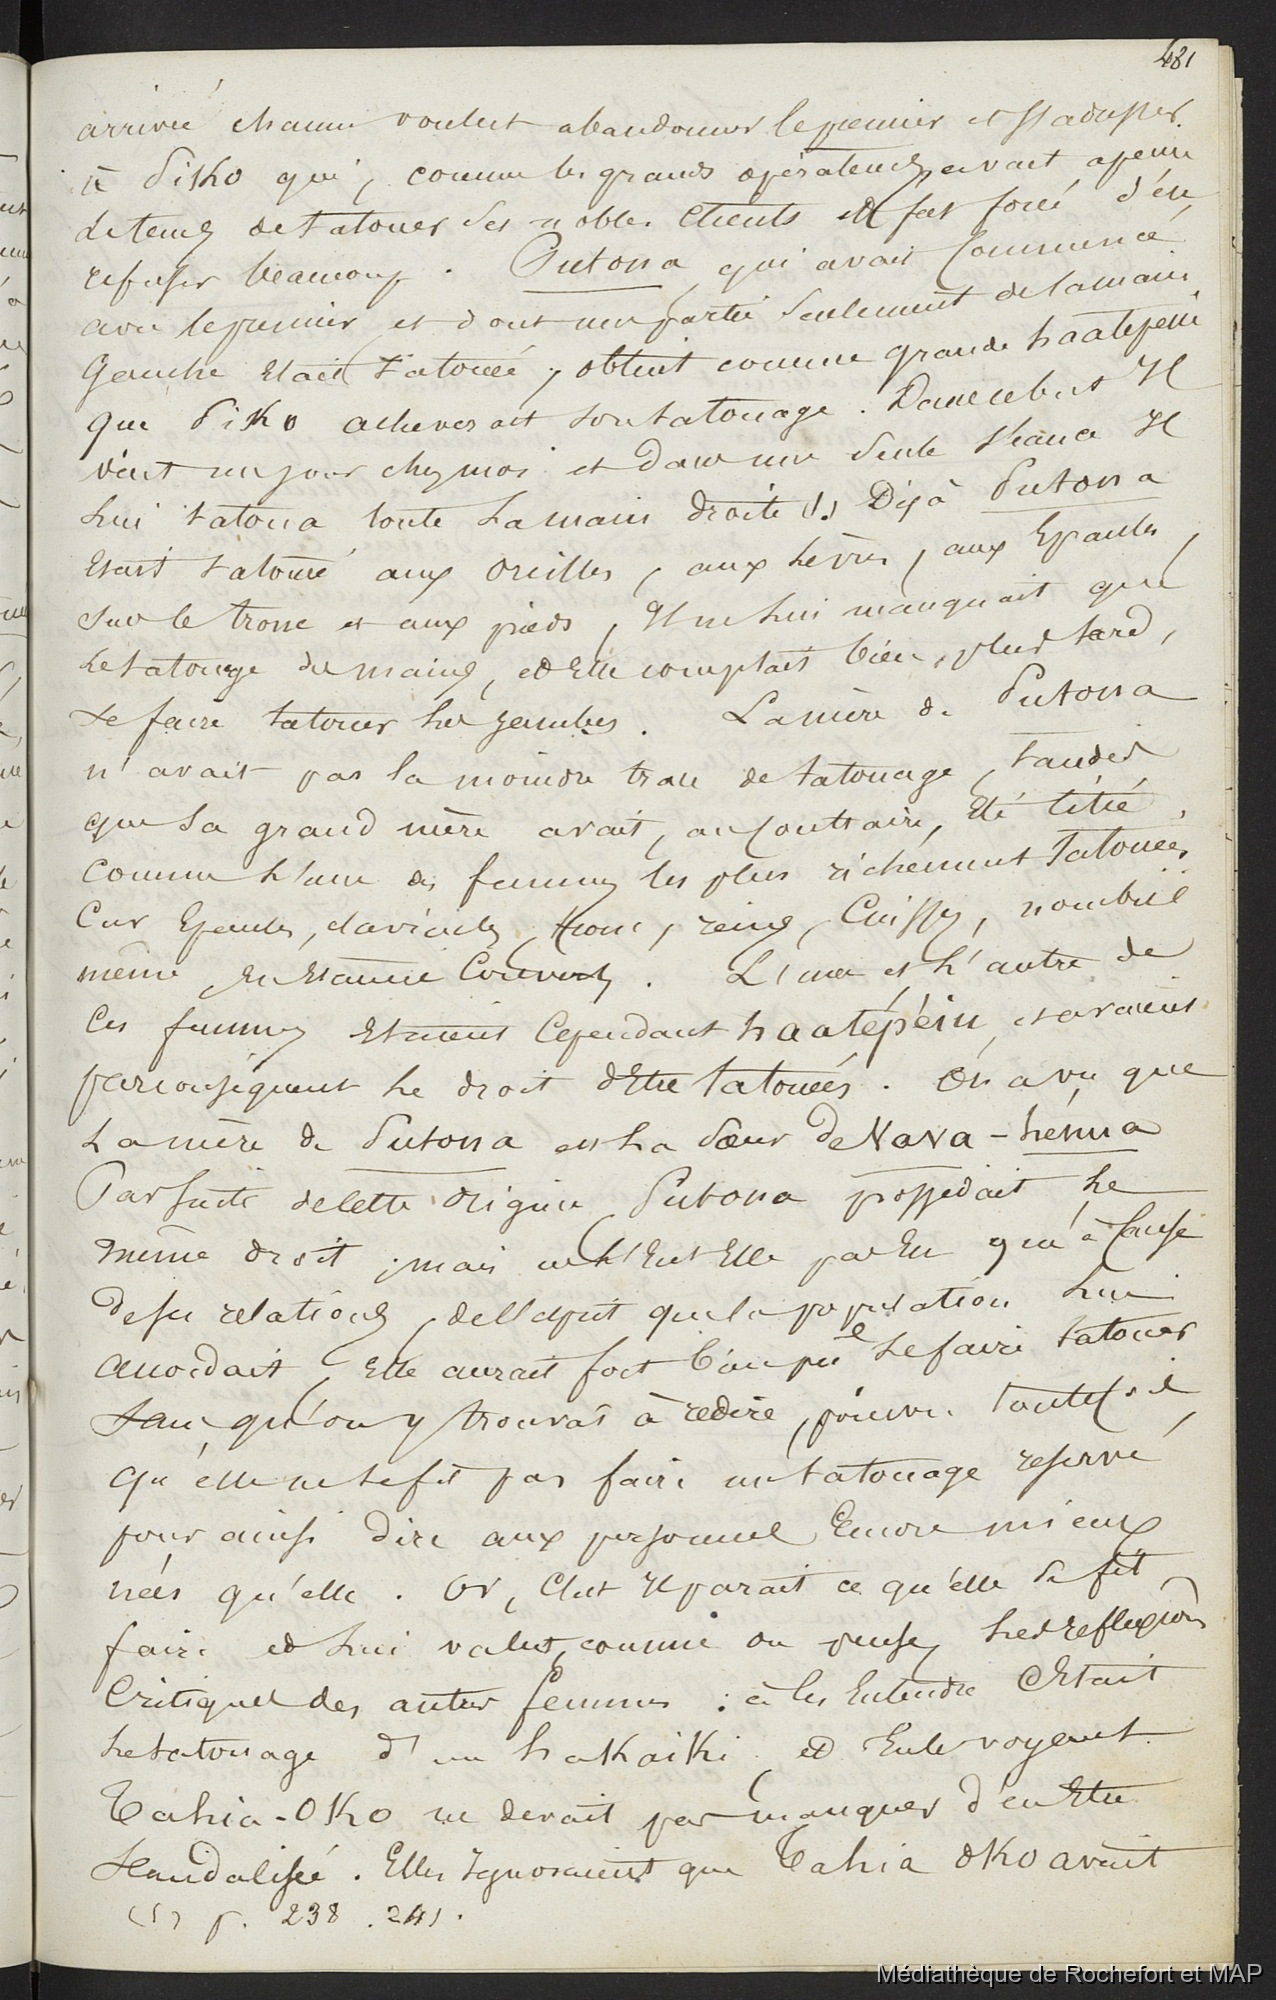 481
arrivée chacun voulut abandonner le premier et s'adresser
à Piko qui, comme les grands opérateurs, avait a peine
le temps de tatouer ses nobles clients et fut forcé d'en
refuser beaucoup. Putona, qui avait commencé
avec le premier et dont une partie seulement de la main
Gauche etait tatouée, obtint comme grande haatepeiu
que Piko acheverait son tatouage. Dans ce but Il
vint un jour chez moi et dans une seule séance Il
lui tatoua toute la main droite (1.) Déjà Putona
etait tatouée aux oreilles, aux lèvres, aux Epaules,
sur le tronc et aux pieds, Il ne lui manquait que
le tatouage des mains, et Elle comptait bien, plus tard,
se faire tatouer les jambes. La mère de Putona
n'avait pas la moindre trace de tatouage, tandis
que sa grand mère avait, au contraire, Eté citée
comme l'une des femmes les plus richement tatouées,
Car Epaules, clavicules, tronc, reins, Cuisses, nombril
même En Etaient Couverts. L'une et l'autre de
Ces femmes Etaient Cependant haatépéiu, et avaient
par conséquent le droit d'Etre tatouées. On a vu que
La mère de Putona est la sœur de Nava-hénua
Par suite de cette Origine Putona possédait le
même droit; mais ne l'Eut Elle pas Eu qu'à cause
de ses relations, de l'esprit que la population lui
accordait, Elle aurait fort bien pu se faire tatouer
Sans qu'on y trouvât à redire, pourvu toutefois
qu'elle ne se fit pas faire un tatouage reservé
pour ainsi dire aux personnes Encore mieux
nées qu'elle. Or, C'est Il parait ce qu'elle se fit
faire et lui valut, comme on pense, les reflexions
Critiques des autres femmes: à les Entendre C'Etait
le tatouage d'un hakaiki, et En le voyant
Tahia-Oko ne devait pas manquer d'en Etre
Scandalisée. Elles Ignoraient que Tahia Oko avait
(1) p. 238. 241.
Médiathèque de Rochefort et MAP